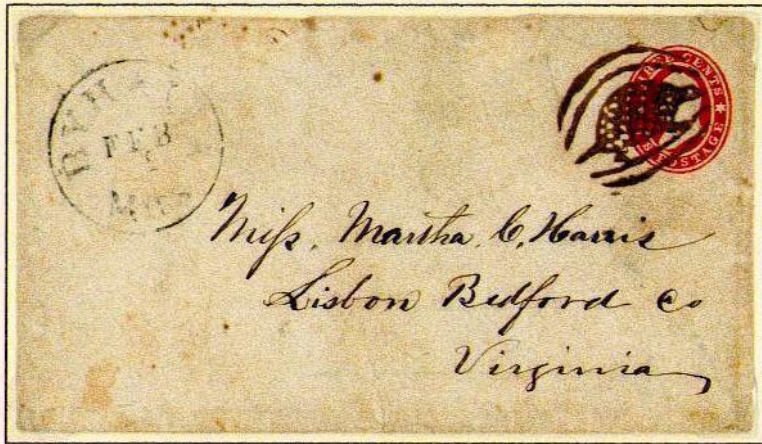 THREE CENTS
POSTAGE
FEB
MISS
Miſs. Martha C. Harris
Lisbon Bedford Co
Virginia